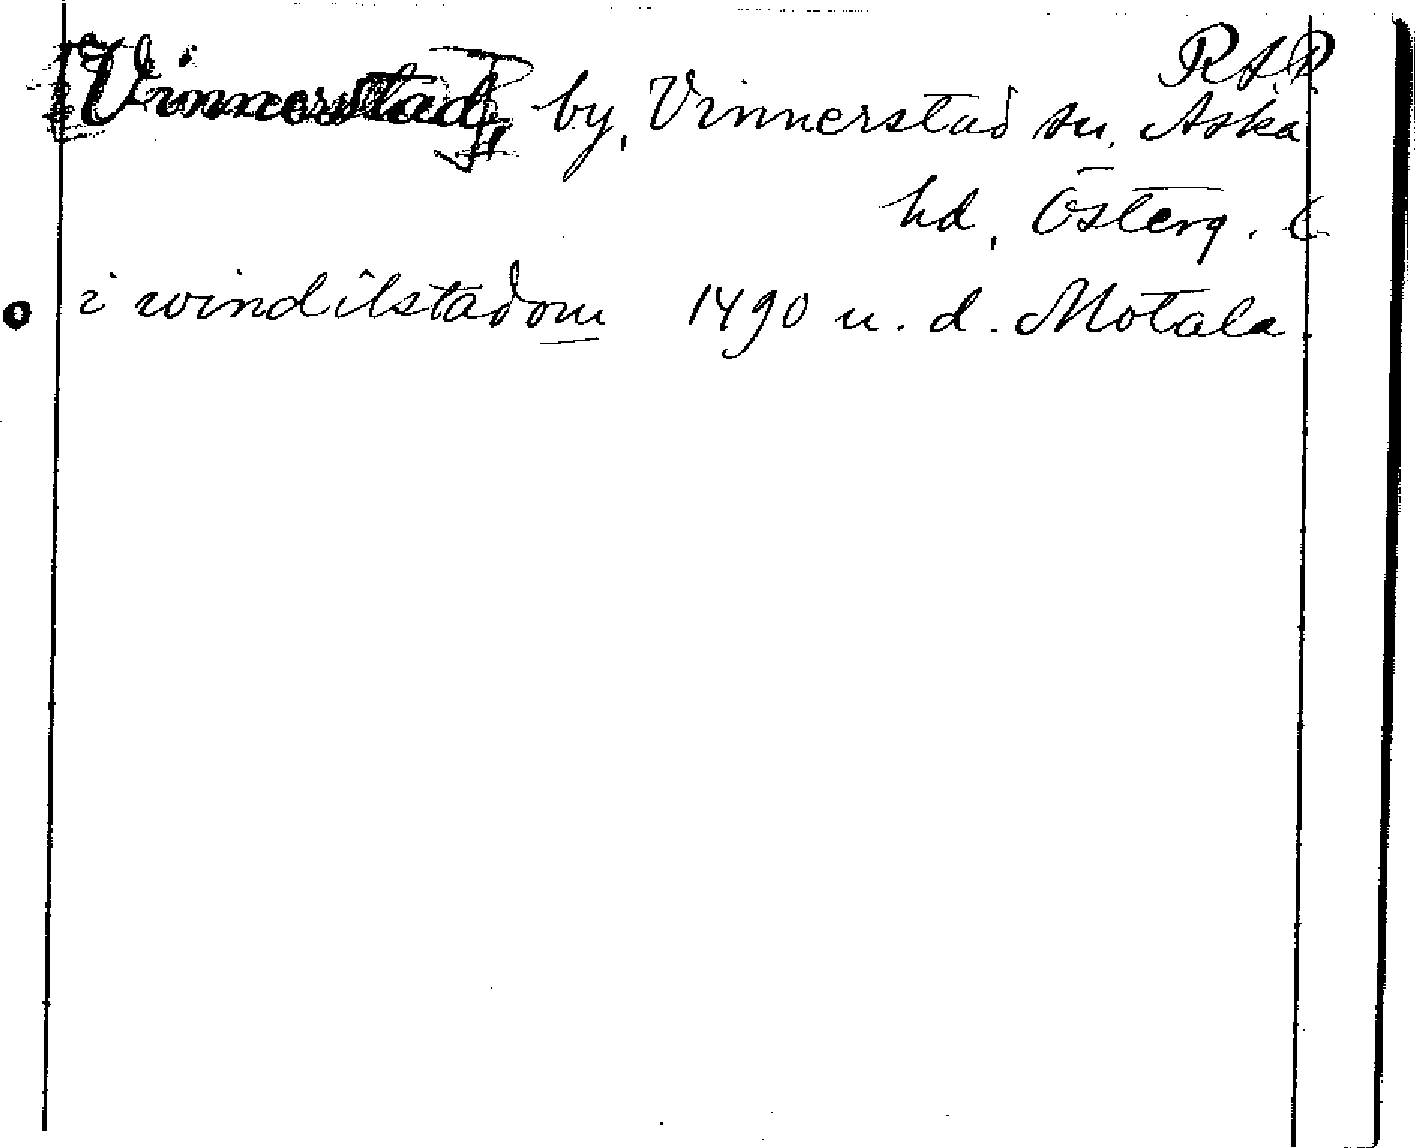 RAP
Vinnerstad, by, Vinnerstad sn, Aska
hd, Österg.
i windilstadom 1490 u. d. Motala